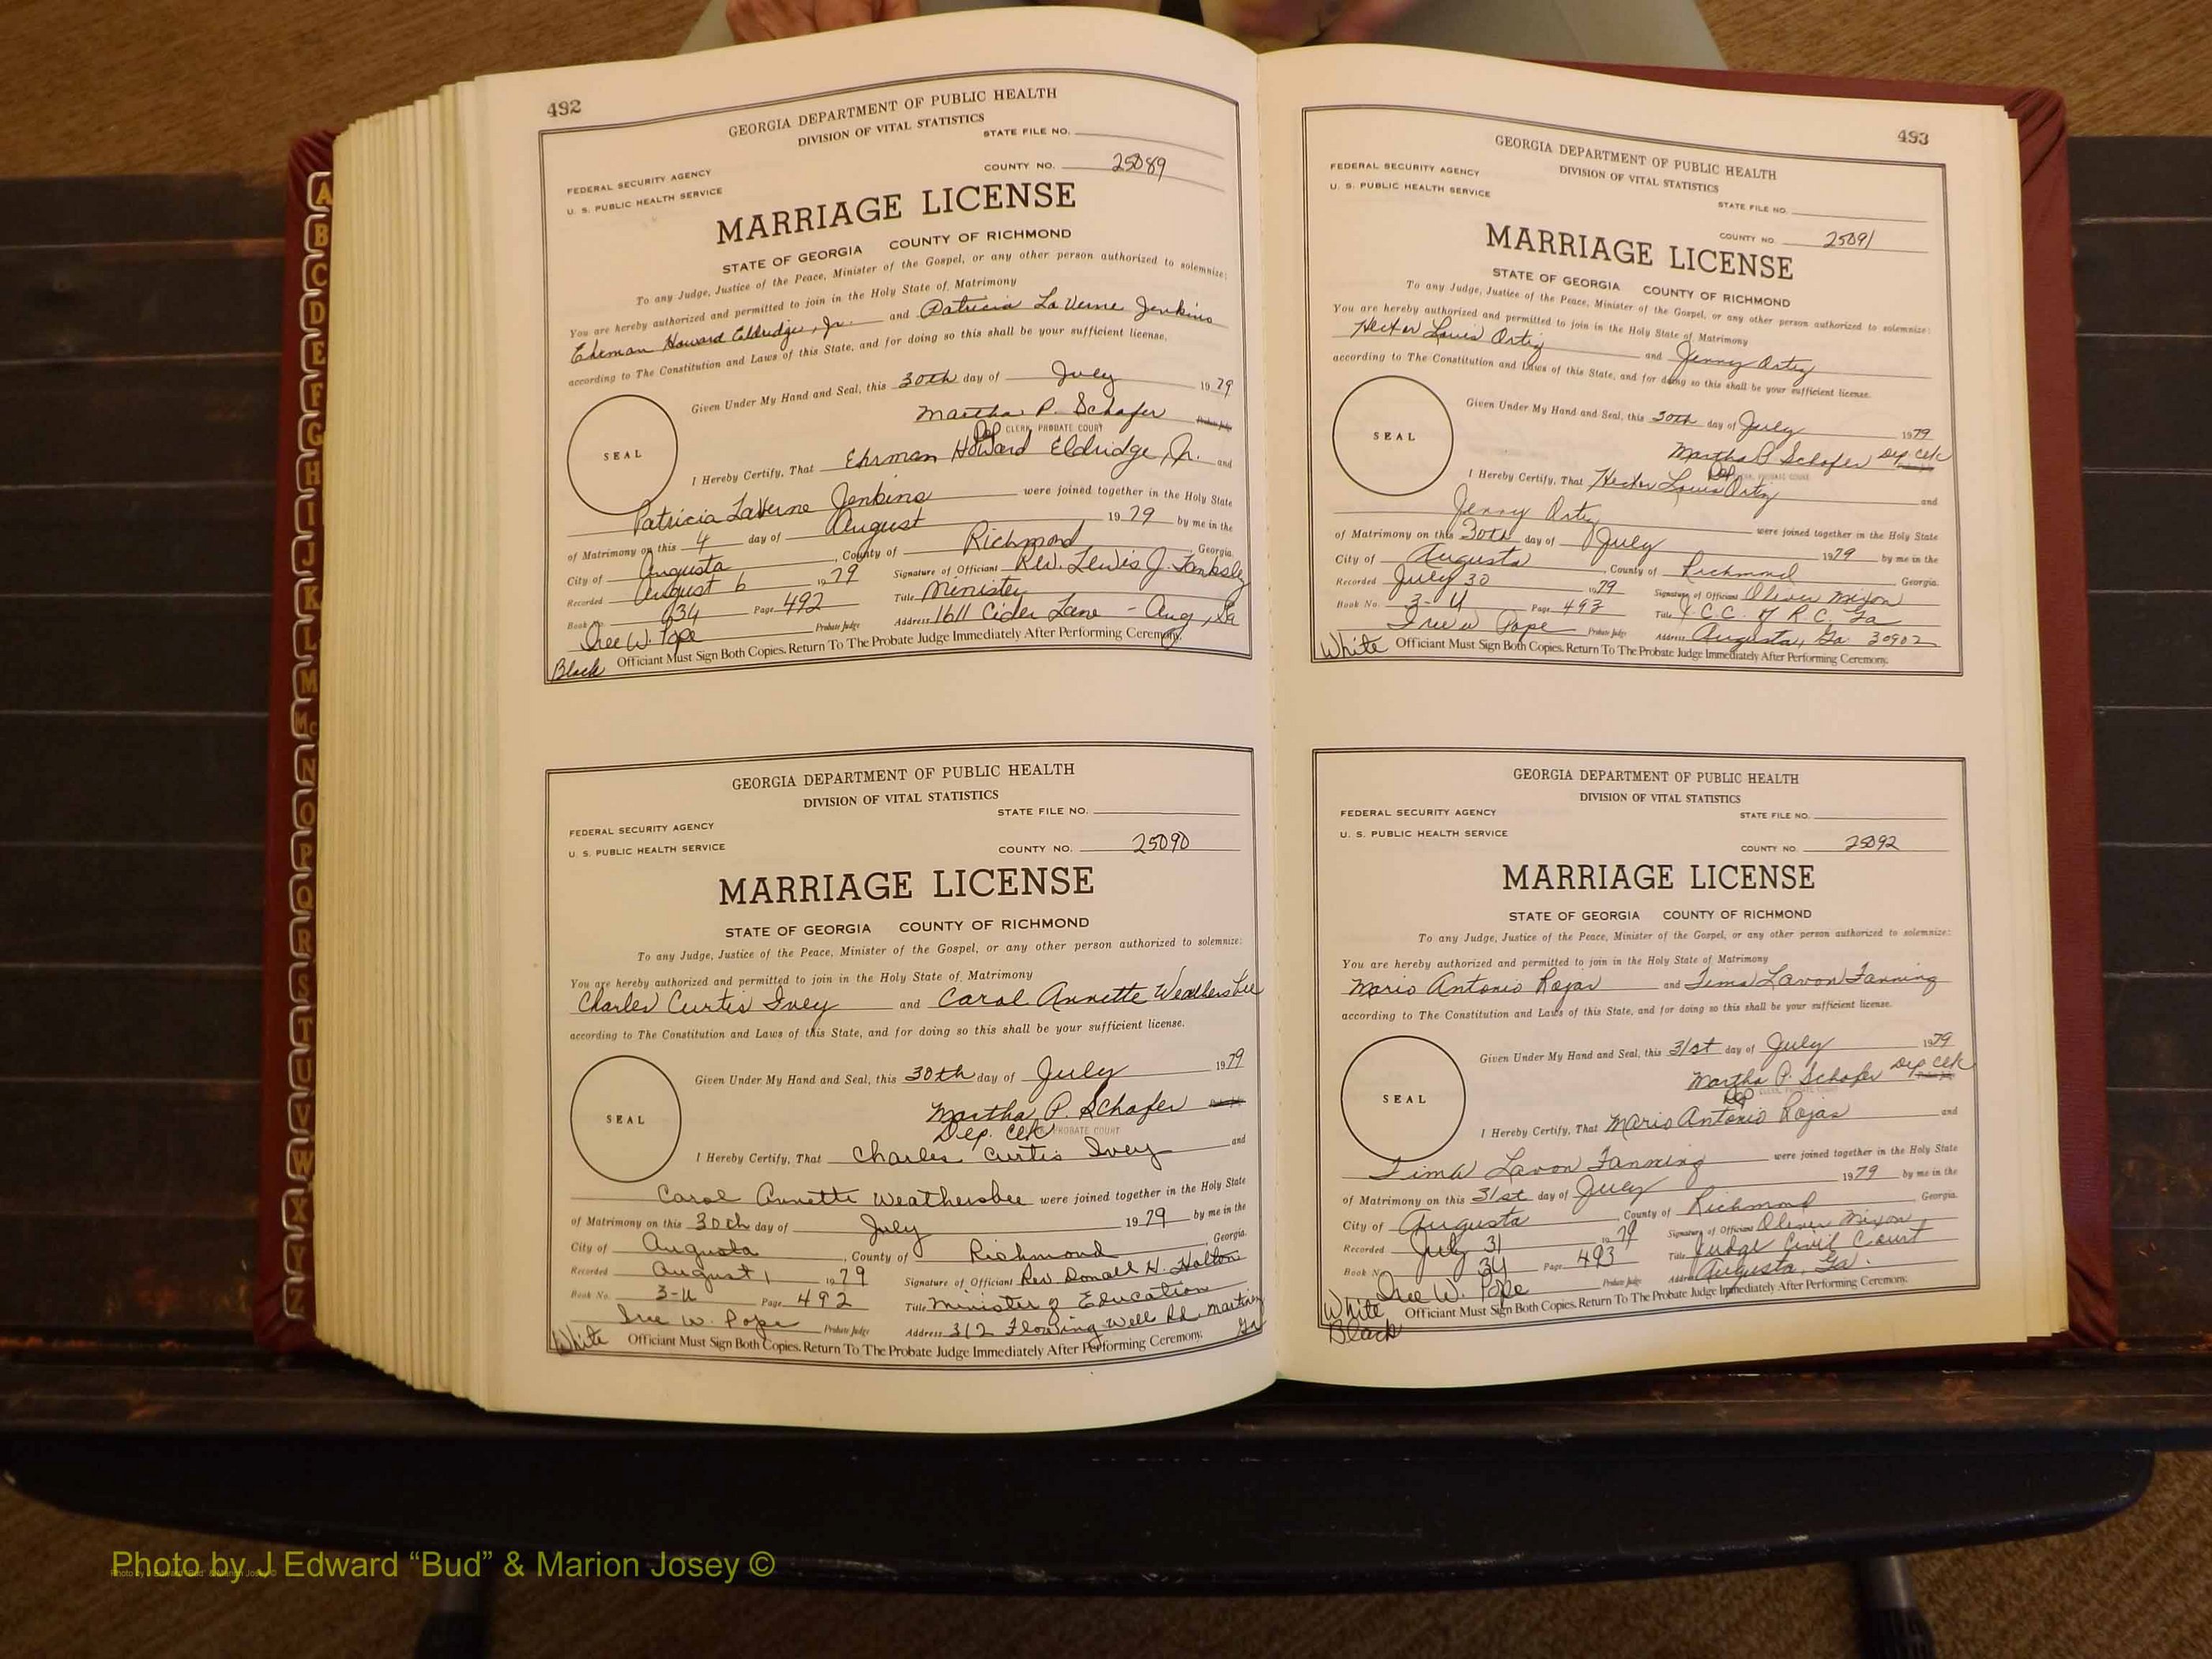 A
B
C
D
E
F
G
H
I
J
K
L
M
Mc
N
O
P
Q
R
S
T
U
V
W
X
Y
Z
492
GEORGIA DEPARTMENT OF PUBLIC HEALTH
DIVISION OF VITAL STATISTICS
STATE FILE NO.
FEDERAL SECURITY AGENCY
U. S. PUBLIC HEALTH SERVICE
COUNTY NO. 25089
MARRIAGE LICENSE
STATE OF GEORGIA COUNTY OF RICHMOND
To any Judge, Justice of the Peace, Minister of the Gospel, or any other person authorized to solemnize:
You are hereby authorized and permitted to join in the Holy State of Matrimony
Ehrman Howard Eldridge, Jr. and Patricia LaVerne Jenkins
according to The Constitution and Laws of this State, and for doing so this shall be your sufficient license.
Given Under My Hand and Seal, this 30th day of July 1979
Martha P. Schafer Probate Judge
Dep CLERK, PROBATE COURT
SEAL
I Hereby Certify, That Ehrman Howard Eldridge, Jr. and
Patricia LaVerne Jenkins were joined together in the Holy State
of Matrimony on this 4 day of August 1979 by me in the
City of Augusta, County of Richmond, Georgia.
Recorded August 6 1979 Signature of Officiant Rev. Lewis J. Tanksley
Book No. 3U Page 492 Title Minister
Iree W. Pope Probate Judge Address 1611 Cider Lane - Aug, Ga
Black Officiant Must Sign Both Copies. Return To The Probate Judge Immediately After Performing Ceremony.
GEORGIA DEPARTMENT OF PUBLIC HEALTH
DIVISION OF VITAL STATISTICS
STATE FILE NO.
FEDERAL SECURITY AGENCY
U. S. PUBLIC HEALTH SERVICE
COUNTY NO. 25090
MARRIAGE LICENSE
STATE OF GEORGIA COUNTY OF RICHMOND
To any Judge, Justice of the Peace, Minister of the Gospel, or any other person authorized to solemnize:
You are hereby authorized and permitted to join in the Holy State of Matrimony
Charles Curtis Ivey and Carol Annette Weathersbee
according to The Constitution and Laws of this State, and for doing so this shall be your sufficient license.
Given Under My Hand and Seal, this 30th day of July 1979
Martha P. Schafer Probate Judge
Dep. Clk PROBATE COURT
SEAL
I Hereby Certify, That Charles Curtis Ivey and
Carol Annette Weathersbee were joined together in the Holy State
of Matrimony on this 30th day of July 1979 by me in the
City of Augusta, County of Richmond, Georgia.
Recorded August 1 1979 Signature of Officiant Rev Donall H. Holton
Book No. 3-U Page 492 Title Minister of Education
Iree W. Pope Probate Judge Address 312 Flowing Well Rd Martinez Ga
White Officiant Must Sign Both Copies. Return To The Probate Judge Immediately After Performing Ceremony.
493
GEORGIA DEPARTMENT OF PUBLIC HEALTH
DIVISION OF VITAL STATISTICS
FEDERAL SECURITY AGENCY
U. S. PUBLIC HEALTH SERVICE
STATE FILE NO.
COUNTY NO. 25091
MARRIAGE LICENSE
STATE OF GEORGIA COUNTY OF RICHMOND
To any Judge, Justice of the Peace, Minister of the Gospel, or any other person authorized to solemnize:
You are hereby authorized and permitted to join in the Holy State of Matrimony
Hector Louis Ortiz and Jenny Ortiz
according to The Constitution and Laws of this State, and for doing so this shall be your sufficient license.
Given Under My Hand and Seal, this 30th day of July 1979
Martha P Schafer Dep Clk
Dep CLERK, PROBATE COURT
SEAL
I Hereby Certify, That Hector Louis Ortiz and
Jenny Ortiz were joined together in the Holy State
of Matrimony on this 30th day of July 1979 by me in the
City of Augusta, County of Richmond, Georgia.
Recorded July 30 1979 Signature of Officiant Oliver Mixon
Book No. 3-U Page 493 Title J.C.C. of R.C. Ga
Iree W Pope Probate Judge Address Augusta, Ga 30902
White Officiant Must Sign Both Copies. Return To The Probate Judge Immediately After Performing Ceremony.
GEORGIA DEPARTMENT OF PUBLIC HEALTH
DIVISION OF VITAL STATISTICS
FEDERAL SECURITY AGENCY
STATE FILE NO.
U. S. PUBLIC HEALTH SERVICE
COUNTY NO. 25092
MARRIAGE LICENSE
STATE OF GEORGIA COUNTY OF RICHMOND
To any Judge, Justice of the Peace, Minister of the Gospel, or any other person authorized to solemnize:
You are hereby authorized and permitted to join in the Holy State of Matrimony
Mario Antonio Rojas and Tima Lavon Fanning
according to The Constitution and Laws of this State, and for doing so this shall be your sufficient license.
Given Under My Hand and Seal, this 31st day of July 1979
Martha P. Schafer Dep Clk
Dep CLERK, PROBATE COURT
SEAL
I Hereby Certify, That Mario Antonio Rojas and
Tima Lavon Fanning were joined together in the Holy State
of Matrimony on this 31st day of July 1979 by me in the
City of Augusta County of Richmond Georgia.
Recorded July 31 1979 Signature of Officiant Oliver Mixon
Book No. 3U Page 493 Title Judge Civil Court
Iree W. Pope Probate Judge Address Augusta, Ga.
White Officiant Must Sign Both Copies. Return To The Probate Judge Immediately After Performing Ceremony.
Black
Photo by J Edward “Bud” & Marion Josey ©
Photo by J Edward “Bud” & Marion Josey ©